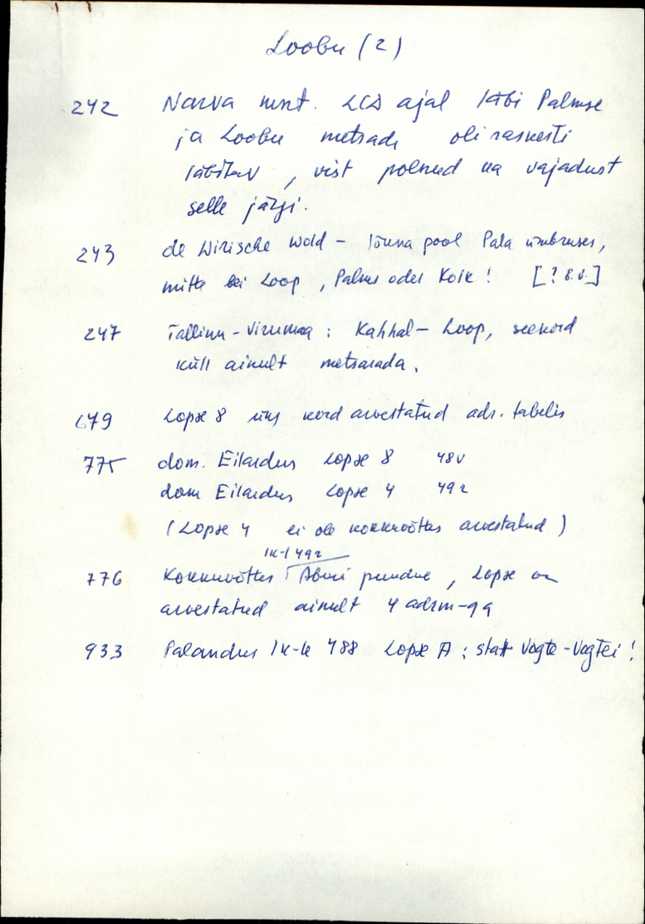 Loobu (2)
242 Narva mnt. LCD ajal läbi Palmse
ja Loobu metsade oli raskesti
läbitav, vist polnud ka vajadust
selle järgi.
243 de Wirische Wold - lõuna pool Pala ümbruses,
mitte bei Loop, Palms oder Kolk! [? E.V.]
247 Tallinn-Virumaa: Kahhal- Loop, seekord
küll ainult metsarada.
679 Lopse 8 üks kord arvestatud adr. tabelis
775 dom. Eilardus Lopse 8 48v
dom Eilardus Lopse 4 49r
(Lopse 4 ei ole kokkuvõttes arvestatud)
lk-l 49r
776 Kokkuvõttes puudue, Lopse on
arvestatud ainult 4 adrm-ga
933 Palandus lk-le 488 Lopse A: statt Vogte - Vogtei!